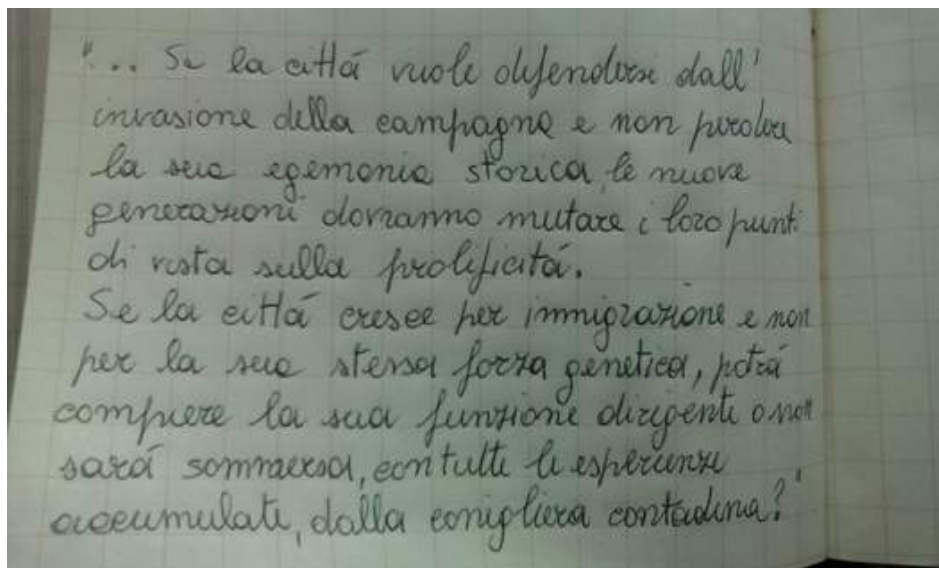 "... Se la cittá vuole difendersi dall'
invasione della campagna e non perdere
la sua egemonia storica, le nuove
generazioni dovranno mutare i loro punti
di vista sulla prolificitá.
Se la cittá cresce per immigrazione e non
per la sua stessa forza genetica, potrá
compiere la sua funzione dirigente o non
sará sommersa, con tutte le esperienze
accumulate, dalla conigliera contadina?"